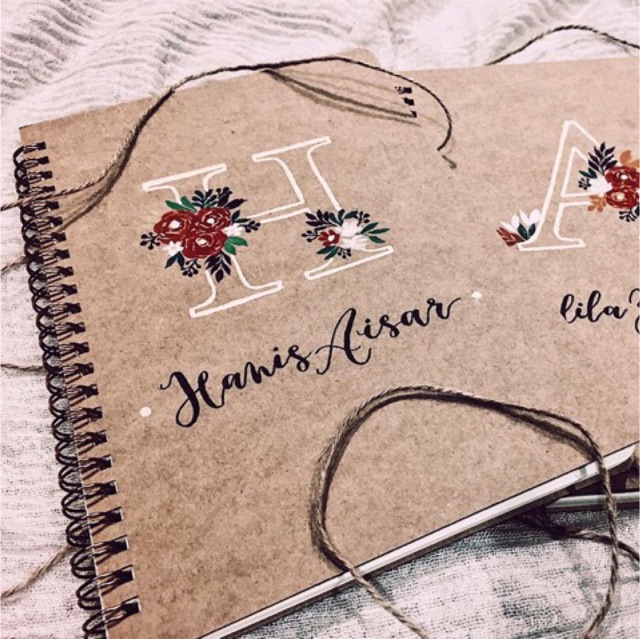 H
A
Hanis Aisar
lila